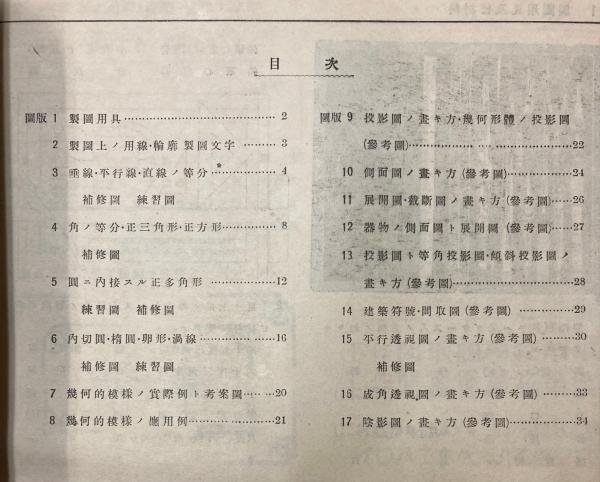 目次
圖版 1 製圖用具 2
2 製圖上ノ用線・輪廓 製圖文字 3
3 垂線・平行線・直線ノ等分 4
補修圖 練習圖
4 角ノ等分・正三角形・正方形 8
補修圖
5 圓ニ內接スル正多角形 12
練習圖 補修圖
6 內切圓・楕圓・卵形・渦線 16
補修圖 練習圖
7 幾何的模樣ノ實際例ト考案圖 20
8 幾何的模樣ノ應用例 21
圖版 9 投影圖ノ畫キ方・幾何形體ノ投影圖
(參考圖) 22
10 側面圖ノ畫キ方 (參考圖) 24
11 展開圖・截斷圖ノ畫キ方 (參考圖) 26
12 器物ノ側面圖ト展開圖 (參考圖) 27
13 投影圖ト等角投影圖・傾斜投影圖ノ
畫キ方 (參考圖) 28
14 建築符號・間取圖 (參考圖) 29
15 不行透視圖ノ畫キ方 (參考圖) 30
補修圖
16 成角透視圖ノ畫キ方 (參考圖) 33
17 陰影圖ノ畫キ方 (參考圖) 34